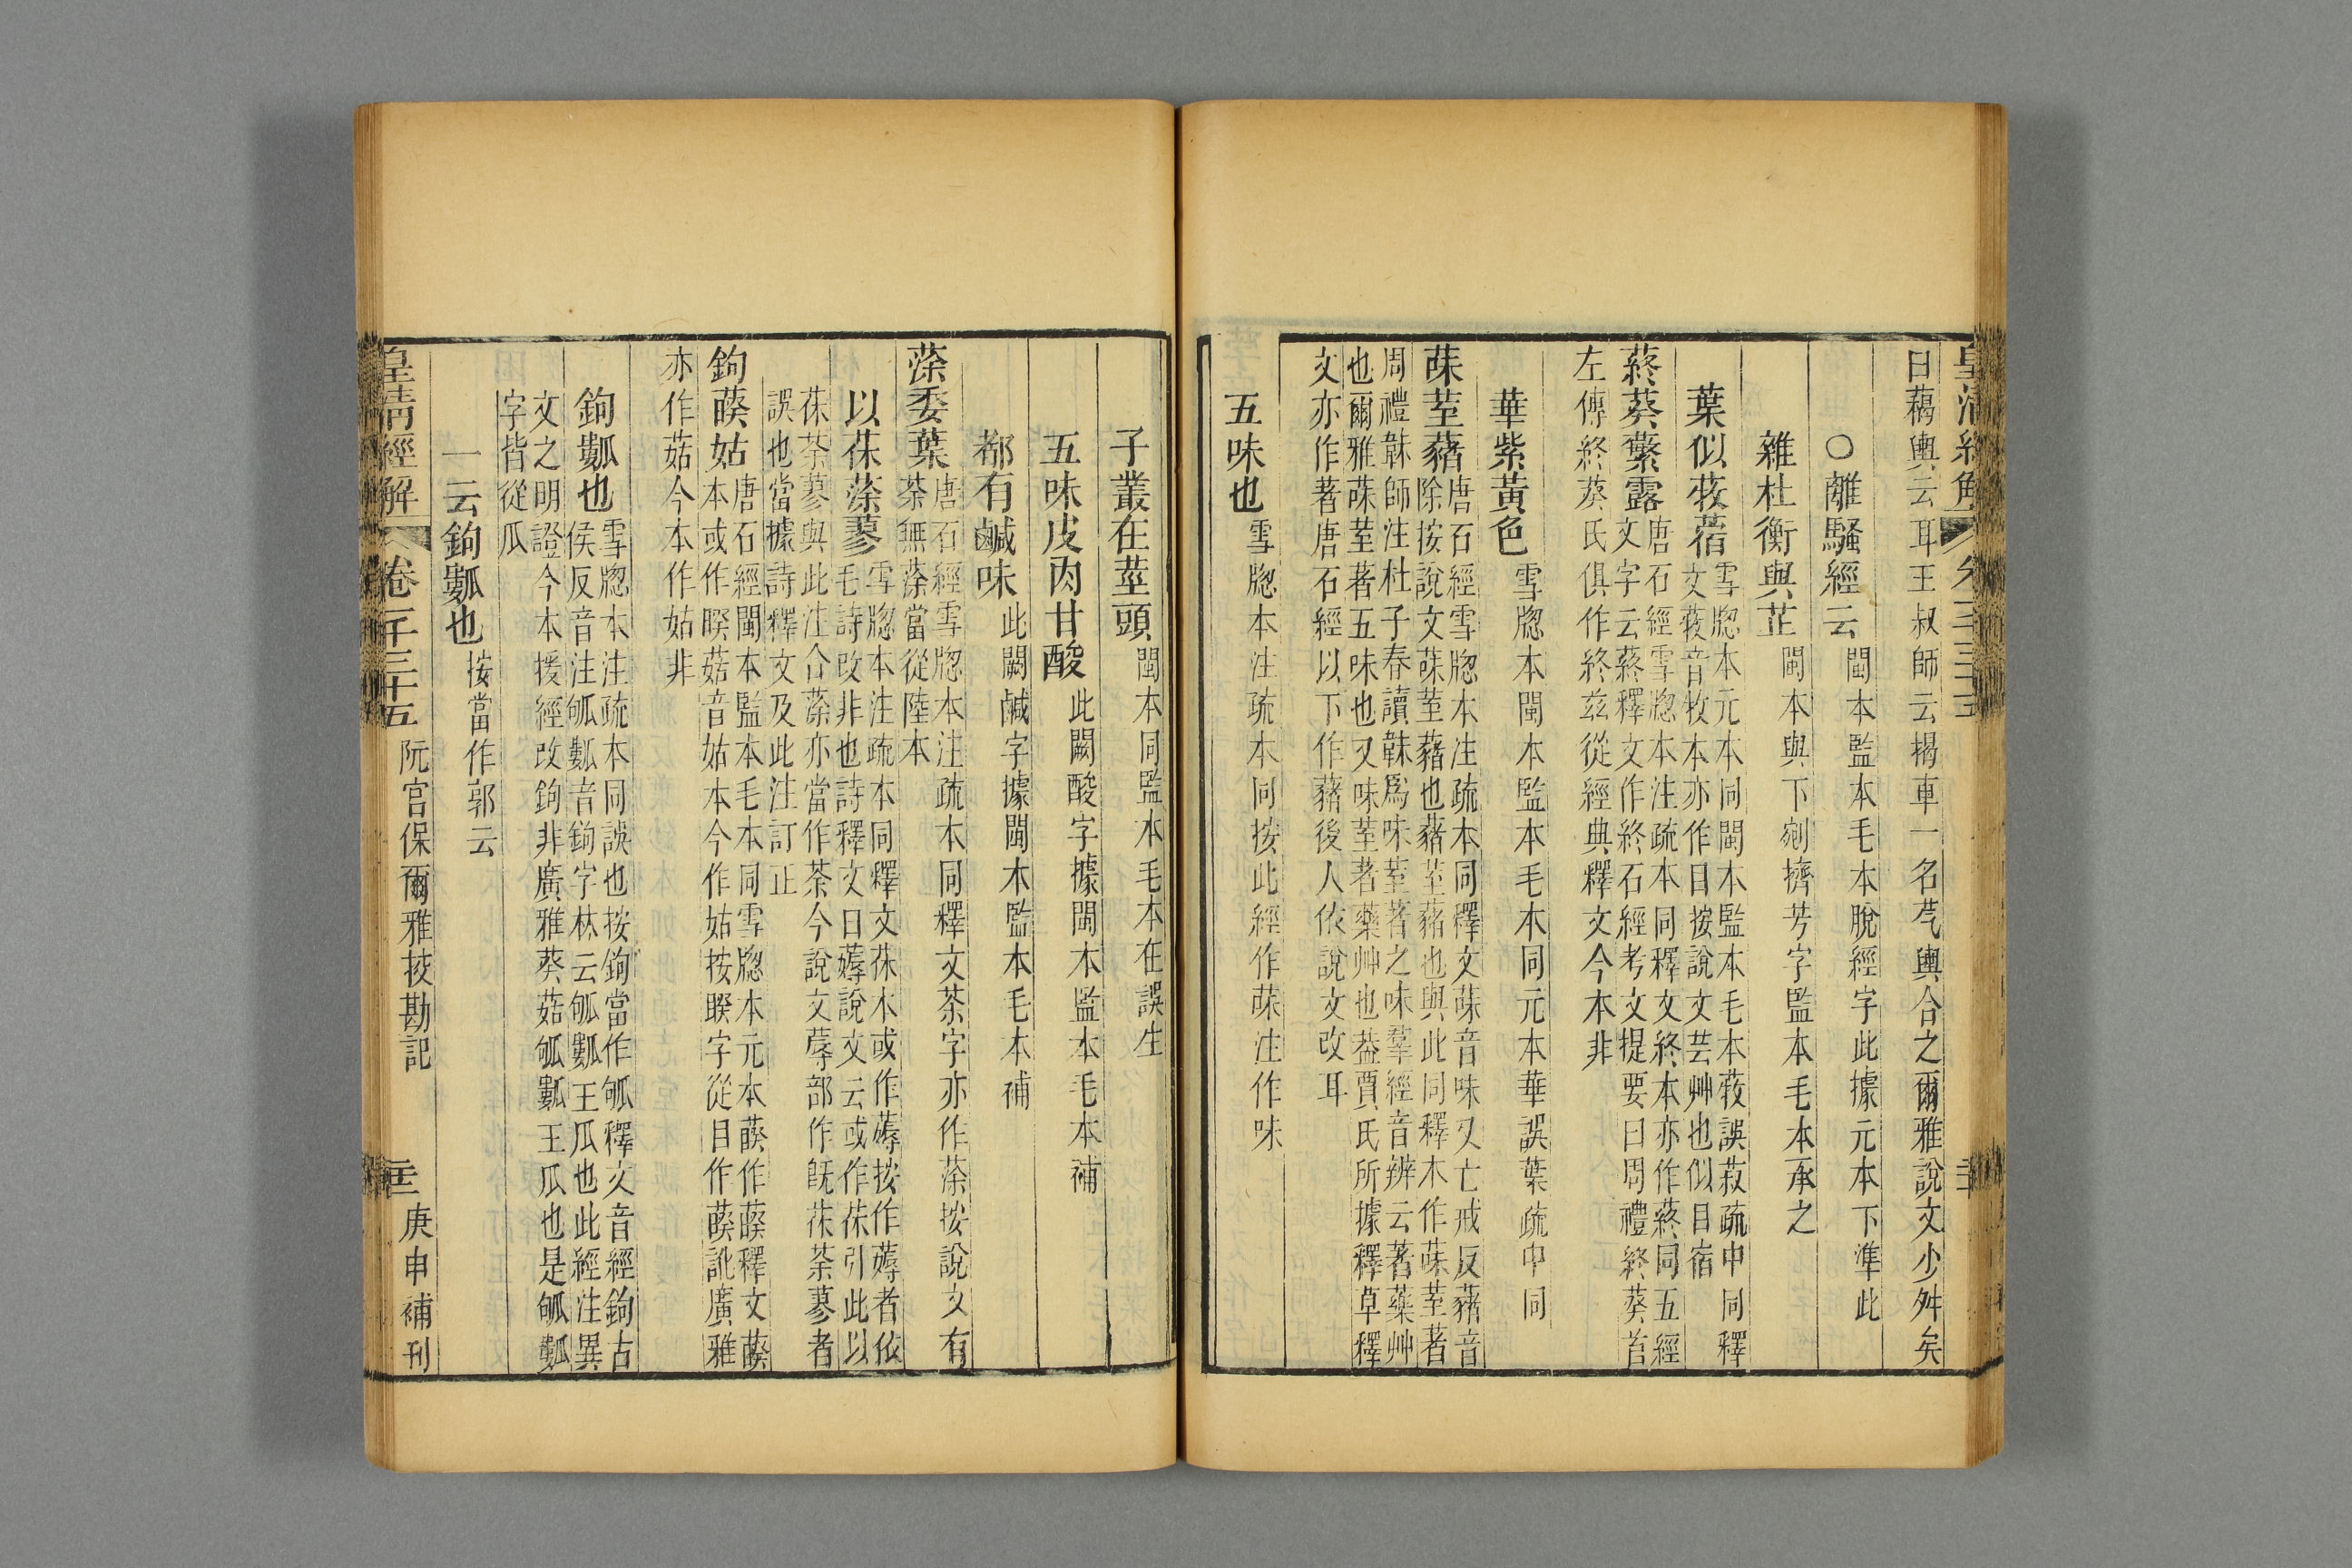 曰藕輿云耳王叔師云揭車一名䒗輿合之爾雅說文少舛矣
○離騷經云閩本監本毛本脫經字此據元本下準此
雜杜衡與芷閩本與下剜擠芳字監本毛本承之
葉似荍蓿雪牎本元本同閩本監本毛本荍誤菽疏中同釋
文荍音牧本亦作目按說文芸艸也似目宿
蔠葵蘩露唐石經雪牎本注疏本同釋文終本亦作蔠同五經
文字云蔠釋文作終石經考文提要曰周禮終葵首
左傳終葵氏俱作終茲從經典釋文今本非
華紫黃色雪牎本閩本監本毛本同元本華誤葉疏中同
菋荎藸唐石經雪牎本注疏本同釋文菋音味又亡戒反藸音
除按說文菋荎藸也藸荎藸也與此同釋木作菋荎著
周禮韎師注杜子春讀韎爲味荎著之味羣經音辨云著藥艸
也爾雅菋荎著五味也又味荎著藥艸也葢賈氏所據釋草釋
文亦作著唐石經以下作藸後人依說文改耳
五味也雪牎本注疏本同按此經作菋注作味
子叢在莖頭閩本同監本毛本在誤生
五味皮肉甘酸此闕酸字據閩本監本毛本補
都有鹹味此闕鹹字據閩本監本毛本補
蒤委葉唐石經雪牎本注疏本同釋文荼字亦作蒤按說文有
荼無蒤當從陸本
以茠蒤蓼雪牎本注疏本同釋文茠本或作薅按作薅者依
毛詩改非也詩釋文曰薅說文云或作茠引此以
茠荼蓼與此注合蒤亦當作荼今說文蓐部作旣茠荼蓼者
誤也當據詩釋文及此注訂正
鉤藈姑唐石經閩本監本毛本同雪牎本元本藈作藈釋文藈
本或作睽菇音姑本今作姑按睽字從目作藈訛廣雅
亦作菇今本作姑非
鉤㼖也雪牎本注疏本同誤也按鉤當作瓡釋文音經鉤古
侯反音注瓡㼖音鉤字林云瓡㼖王瓜也此經注異
文之明證今本援經改鉤非廣雅葵菇瓡㼖王瓜也是瓡㼖
字皆從瓜
一云鉤㼖也按當作郭云
皇清經解卷一千三十五 阮宮保爾雅挍勘記 庚申補刊